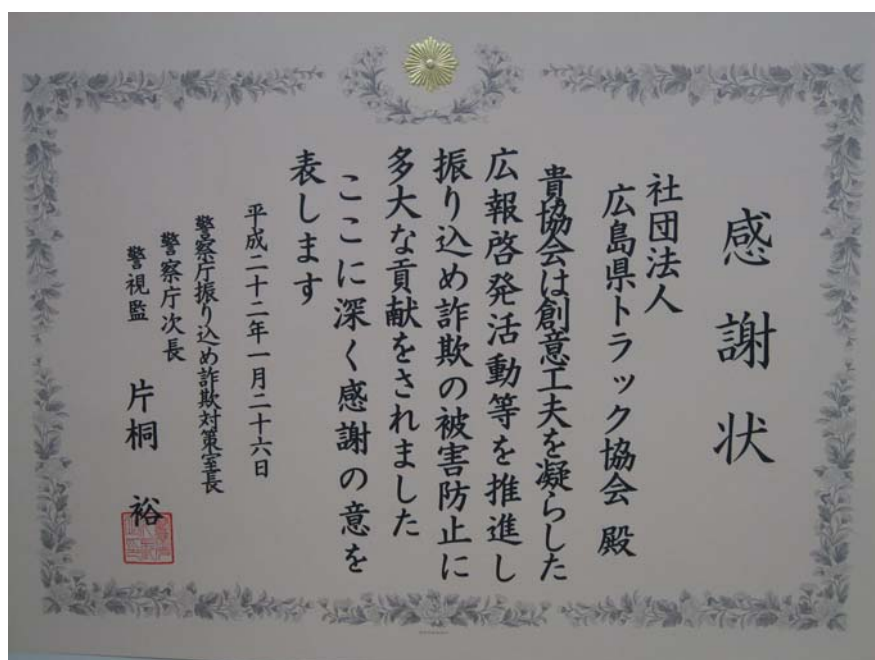 感謝状
社団法人
広島県トラック協会 殿
貴協会は創意工夫を凝らした
広報啓発活動等を推進し
振り込め詐欺の被害防止に
多大な貢献をされました
ここに深く感謝の意を
表します
平成二十二年一月二十六日
警察庁振り込め詐欺対策室長
警察庁次長
警視監 片桐 裕